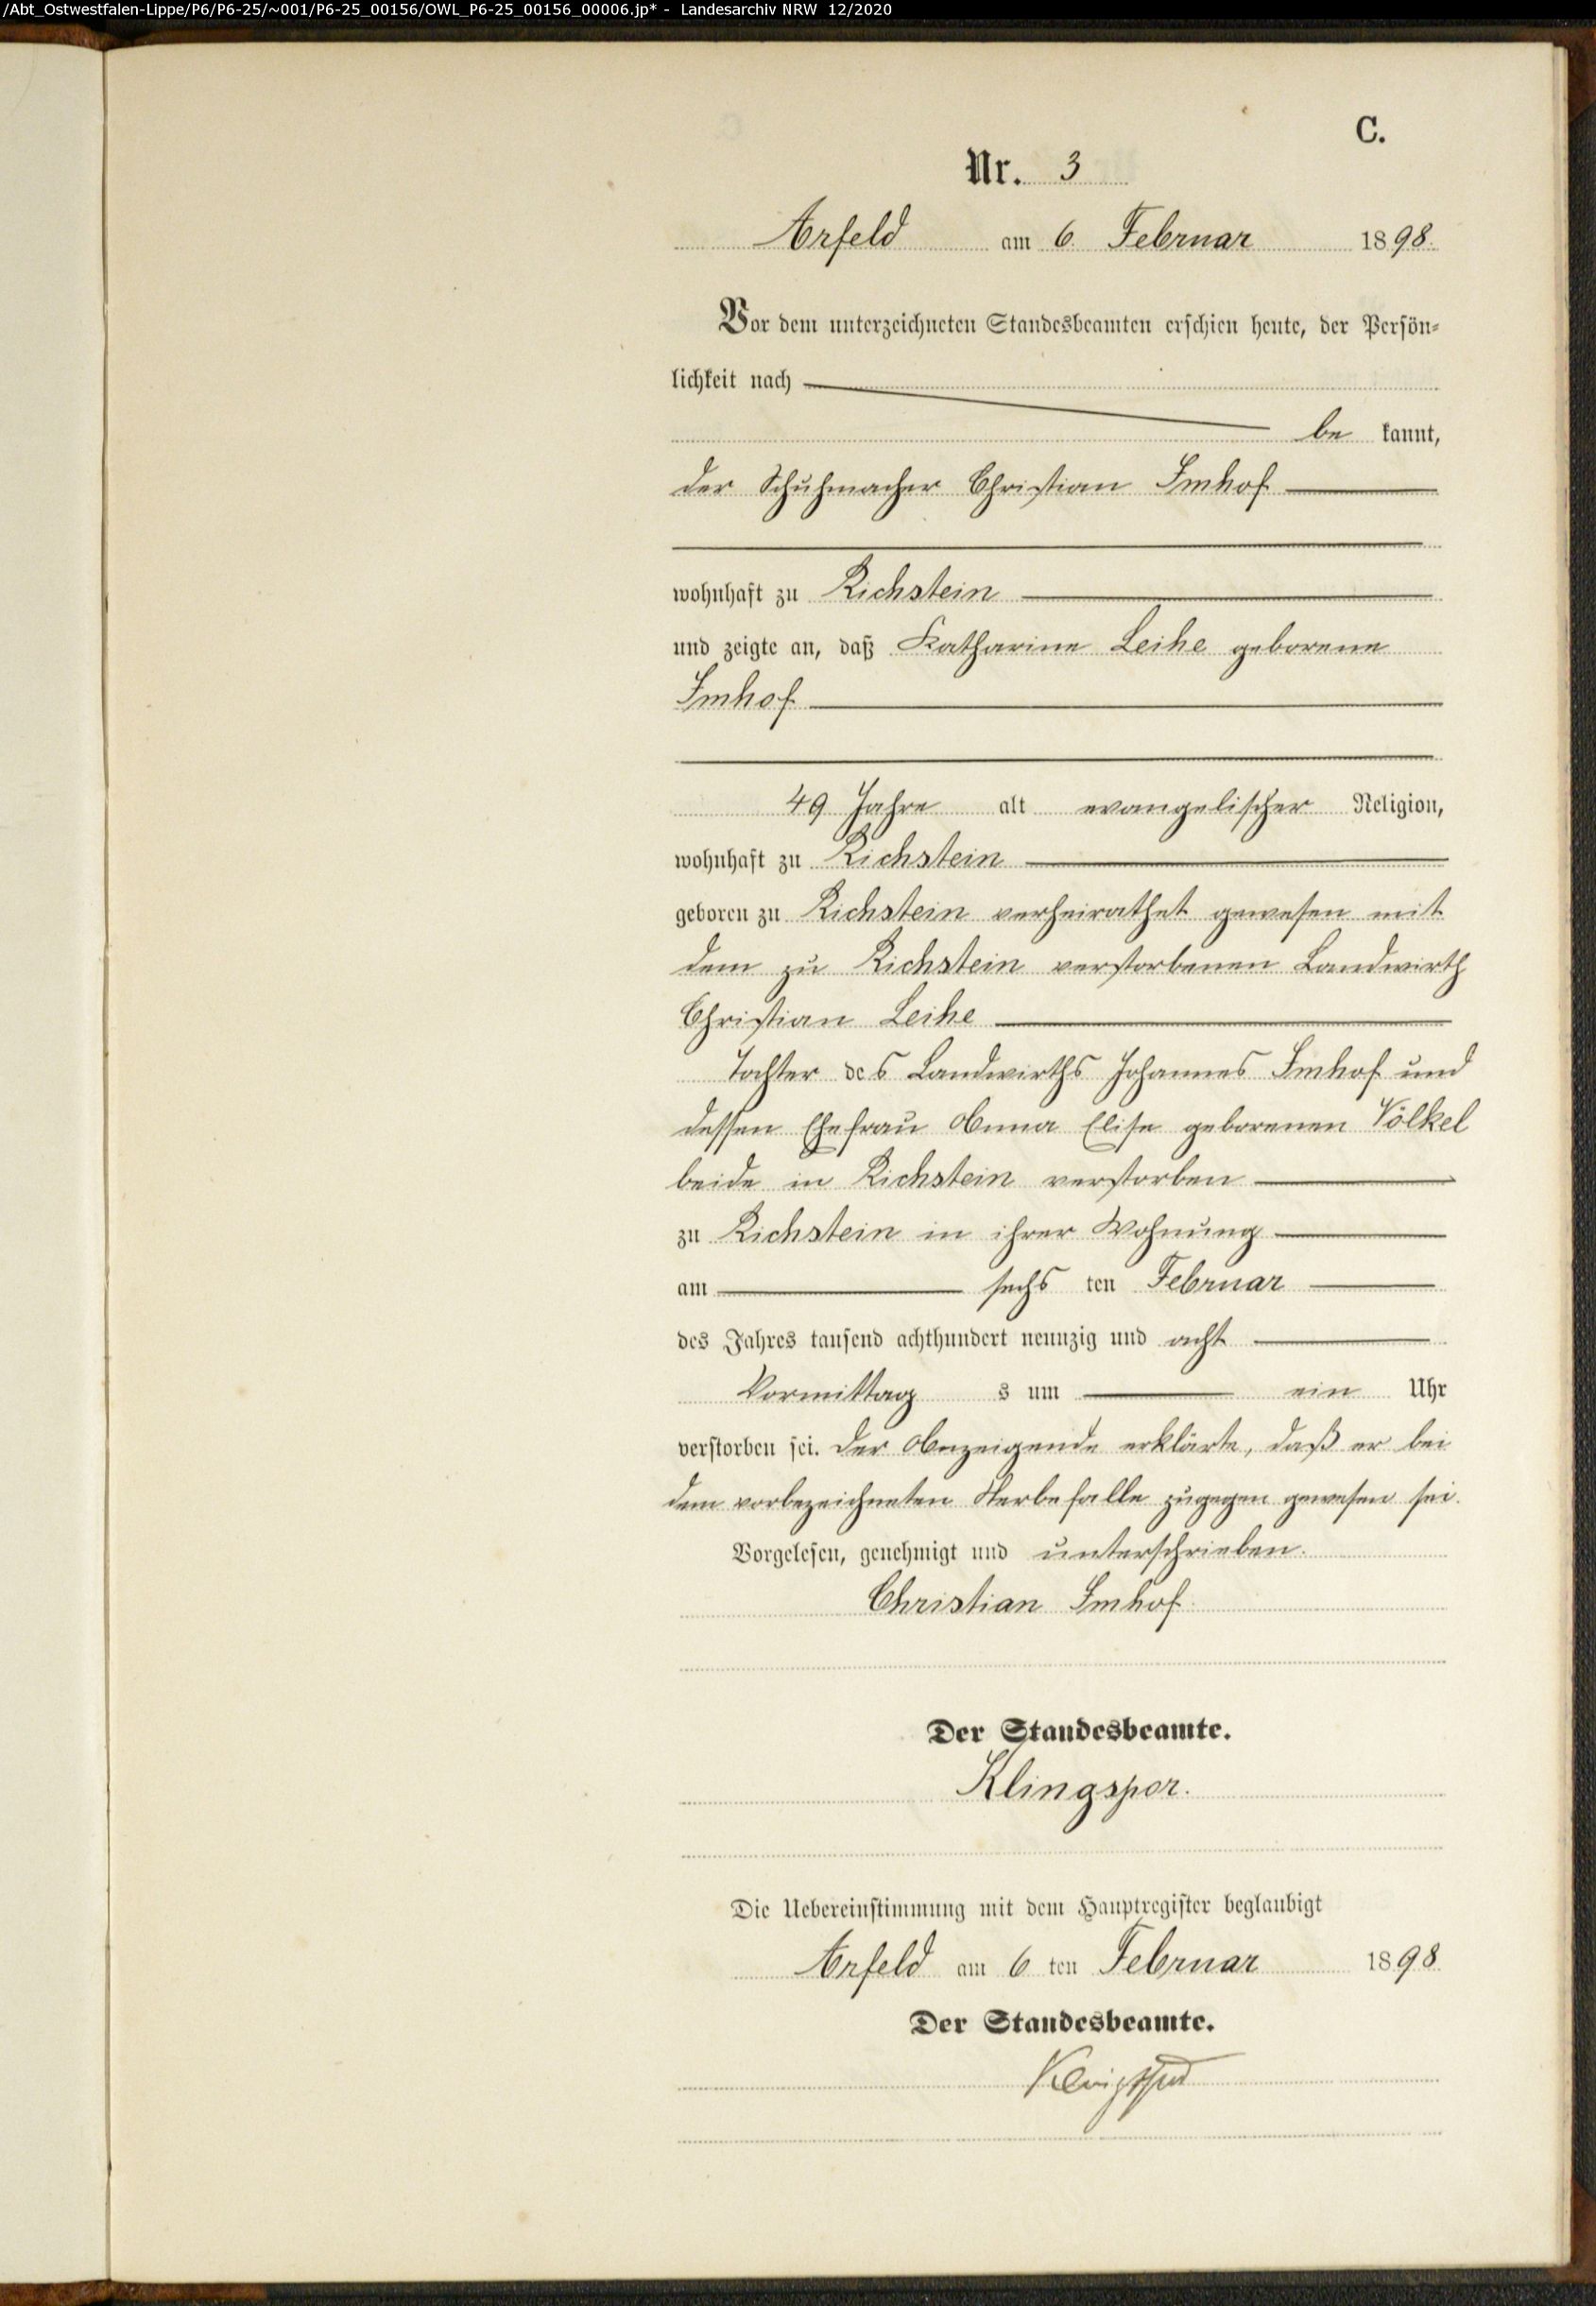 /Abt_Ostwestfalen-Lippe/P6/P6-25/~001/P6-25_00156/OWL_P6-25_00156_00006.jp* - Landesarchiv NRW 12/2020
C.
Nr. 3
Arfeld am 6. Februar 1898.
Vor dem unterzeichneten Standesbeamten erschien heute, der Persön-
lichkeit nach
be kannt,
der Schuhmacher Christian Imhof
wohnhaft zu Richstein
und zeigte an, daß Katharine Leihe geborene
Imhof
49 Jahre alt evangelischer Religion,
wohnhaft zu Richstein
geboren zu Richstein verheirathet gewesen mit
dem zu Richstein verstorbenen Landwirth
Christian Leihe
Tochter des Landwirths Johannes Imhof und
dessen Ehefrau Anna Elise geborenen Völkel
beide in Richstein verstorben
zu Richstein in ihrer Wohnung
am sechs ten Februar
des Jahres tausend achthundert neunzig und acht
Vormittag s um ein Uhr
verstorben sei. Der Anzeigende erklärte, daß er bei
dem vorbezeichneten Sterbefalle zugegen gewesen sei.
Vorgelesen, genehmigt und unterschrieben.
Christian Imhof
Der Standesbeamte.
Klingspor.
Die Uebereinstimmung mit dem Hauptregister beglaubigt
Arfeld am 6 ten Februar 1898
Der Standesbeamte.
Klingspor